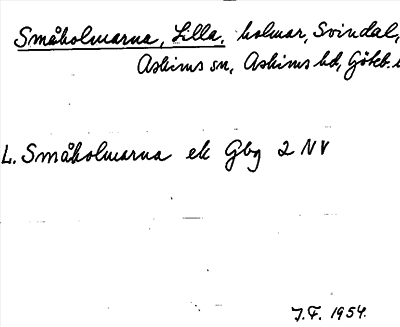 Småholmarna, Lilla. holmar, Svindal,
Askims sn, Askims hd, Göteb.
L. Småholmarna ek Gbg 2 NV
J.F. 1954.